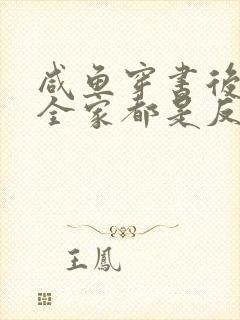 咸鱼穿書後
全家都是反
王鳳